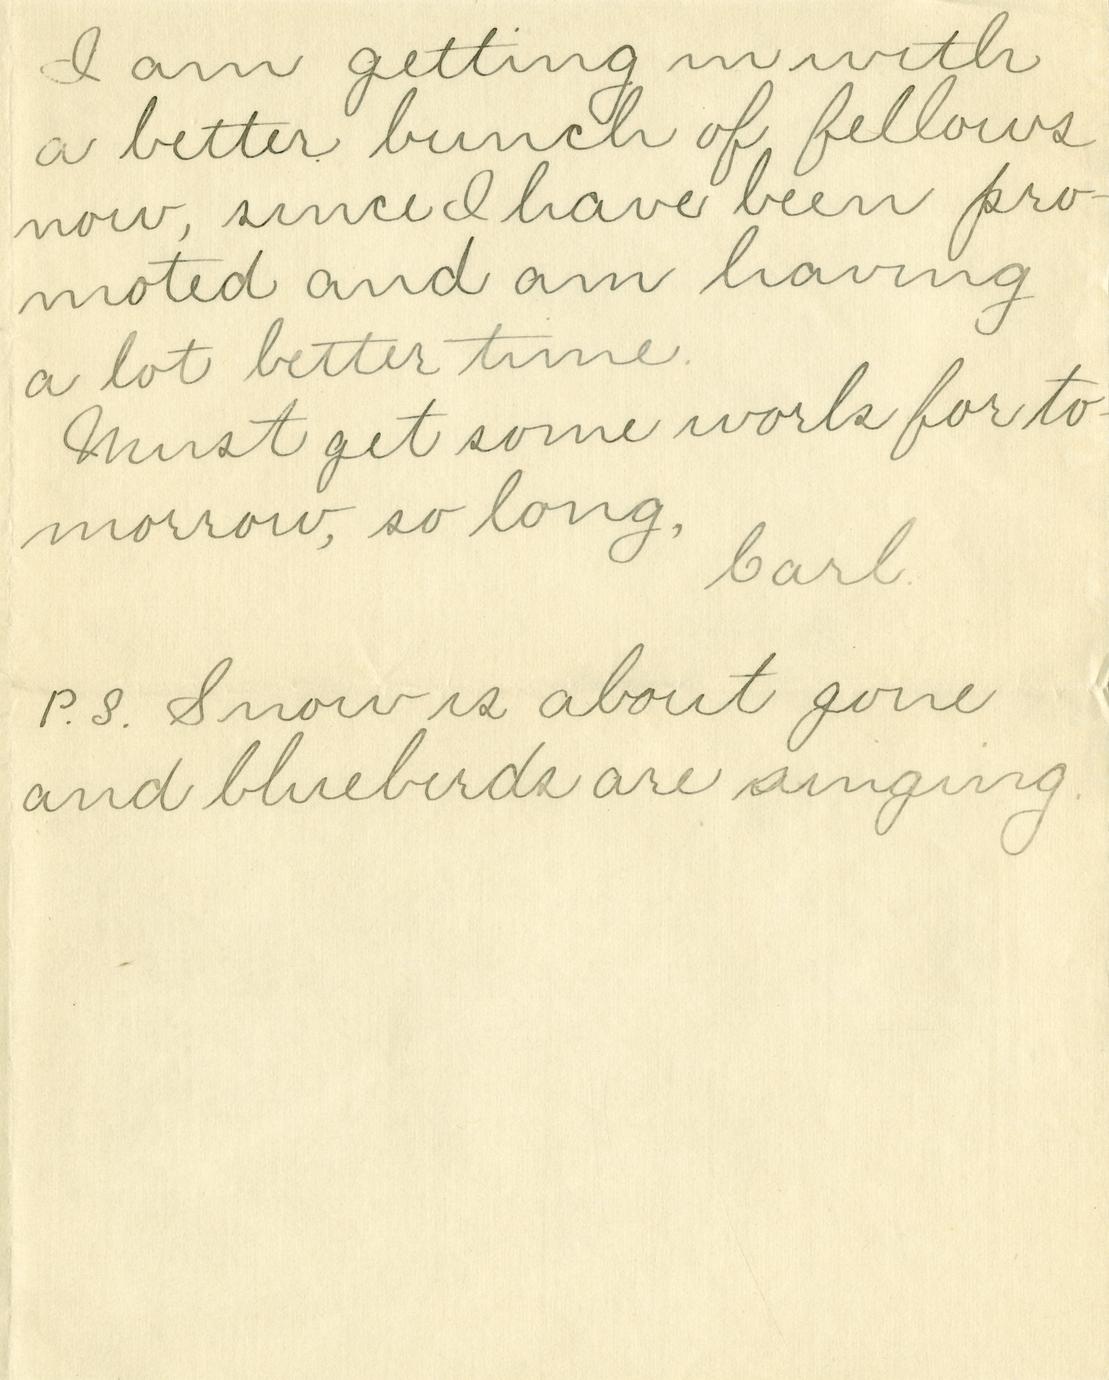 I am getting in with
a better bunch of fellows
now, since I have been pro-
moted and am having
a lot better time.
Must get some work for to-
morrow, so long,
Carl.
P.S. Snow is about gone
and bluebirds are singing.